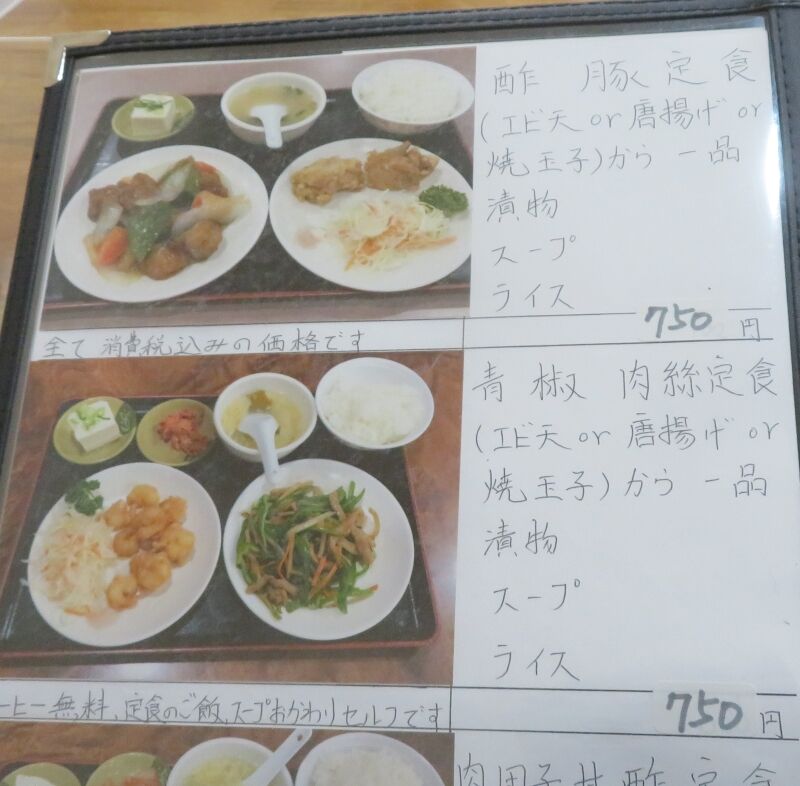 酢豚定食
(エビ天or唐揚げor
焼玉子)から一品
漬物
スープ
ライス
750円
全て消費税込みの価格です
青椒肉絲定食
(エビ天or唐揚げor
焼玉子)から一品
漬物
スープ
ライス
750円
ーヒー無料、定食のご飯、スープおかわりセルフです
肉団子甘酢定食